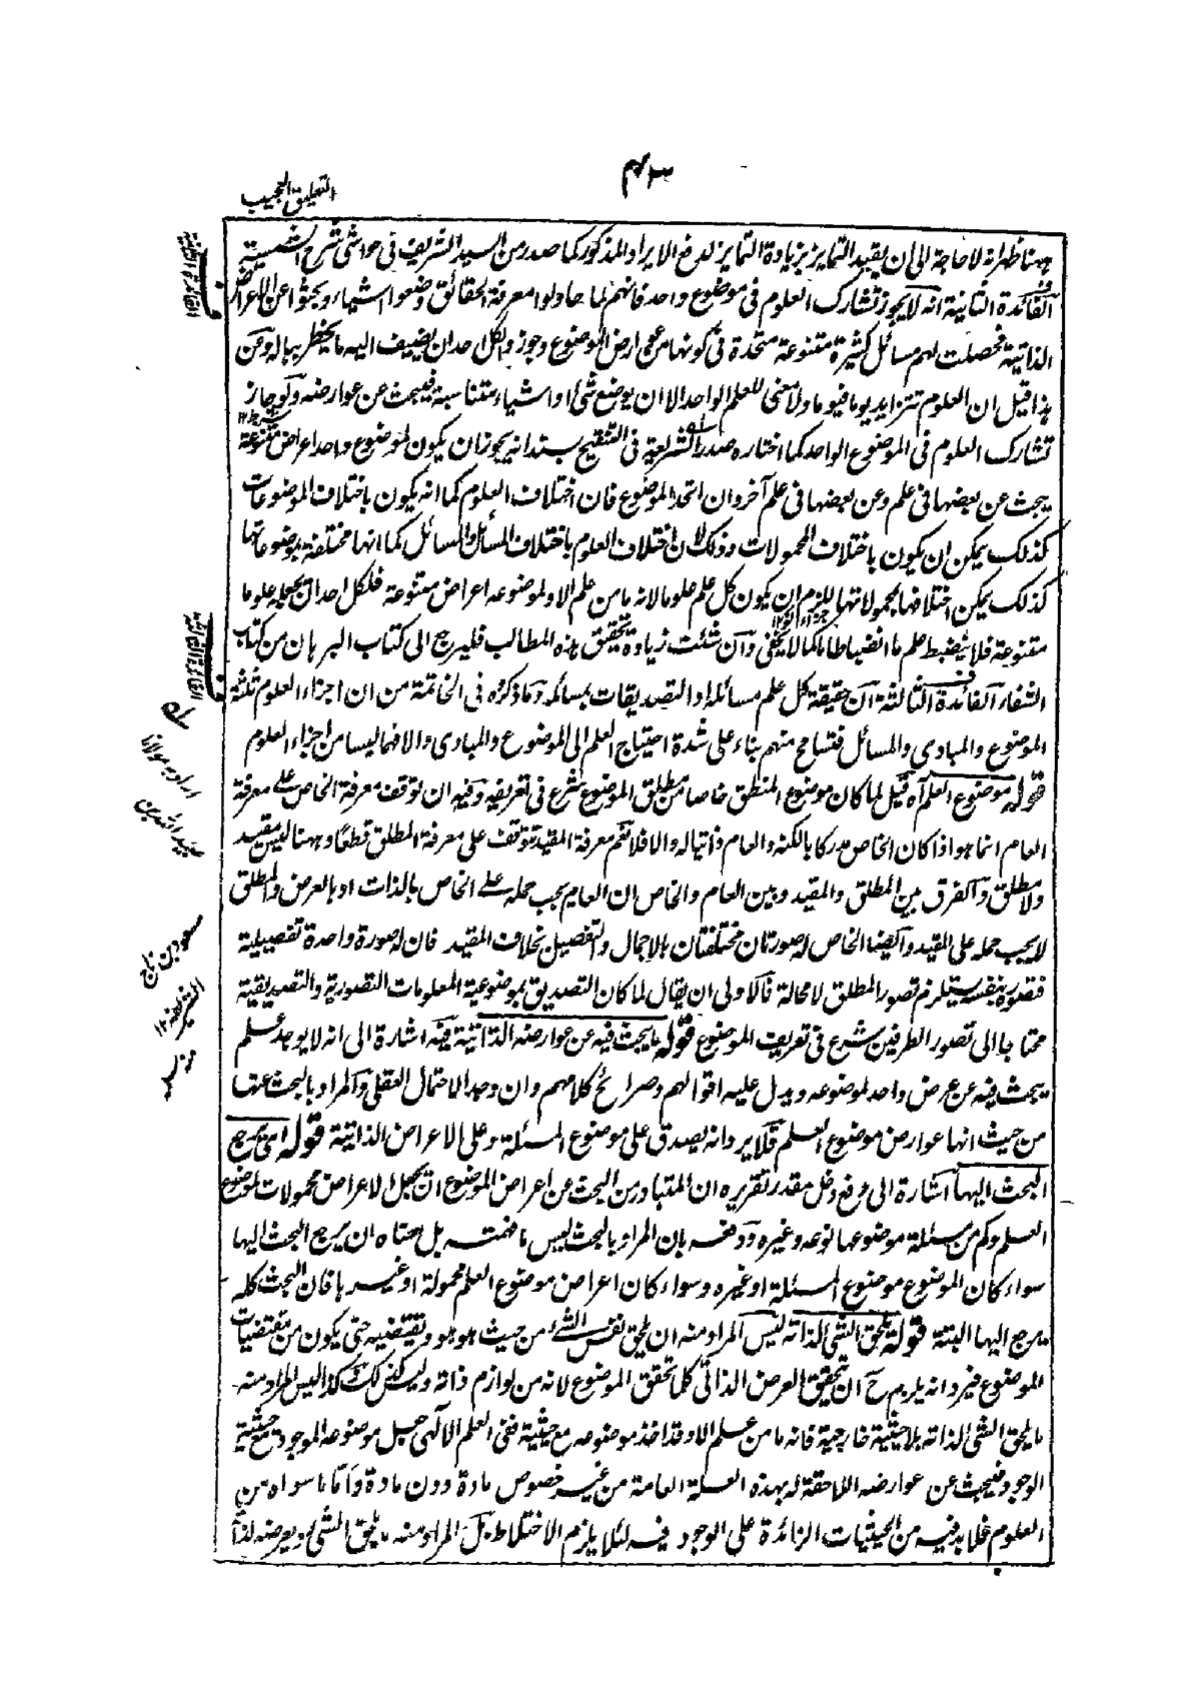 ٤٣
التعليق العجيب
ههنا ظهر انه لا حاجة الى ان يقيد التمايز بزيادة التمايز لدفع الايراد المذكور كما صدر من السيد الشريف فى حواشى شرح الشمسية
الفائدة الثانية انه لا يجوز تشارك العلوم فى موضوع واحد فانهم لما حاولوا معرفة الحقائق وضعوا اشياء وبحثوا عن الاعراض
الذاتية فحصلت لهم مسائل كثيرة متنوعة متحدة فى كونها من عوارض الموضوع وجوزوا لكل احد ان يضيف اليه ما يخطر بباله ومن
هذا قيل ان العلوم تتزايد يوما فيوما ولا معنى للعلم الواحد الا ان يوضع شئ او اشياء متناسبة فيبحث عن عوارضه ولو جاز
تشارك العلوم فى الموضوع الواحد كما اختاره صدر الشريعة فى التنقيح بسند انه يجوز ان يكون لموضوع واحد اعراض متنوعة
يبحث عن بعضها فى علم وعن بعضها فى علم آخر وان اتحد الموضوع فان اختلاف العلوم كما انه يكون باختلاف الموضوعات
كذلك يمكن ان يكون باختلاف المحمولات وذلك لان اختلاف العلوم باختلاف المسائل والمسائل كما انها مختلفة بموضوعاتها
كذلك يمكن اختلافها بمحمولاتها يلزم ان يكون كل علم علوما لانه ما من علم الا ولموضوعه اعراض متنوعة فلكل احد ان يجعله علوما
متنوعة فلا ينضبط علم ما انضباطا ما كما لا يخفى وان شئت زيادة تحقيق هذه المطالب فليرجع الى كتاب البرهان من كتاب
الشفاء الفائدة الثالثة ان حقيقة كل علم مسائله او التصديقات بمسائله وما ذكروه فى الخاتمة من ان اجزاء العلوم ثلثة
الموضوع والمبادى والمسائل فتسامح منهم بناء على شدة احتياج العلم الى الموضوع والمبادى والا فهما ليسا من اجزاء العلوم
قوله موضوع العلم آه قيل لما كان موضوع المنطق خاصا من مطلق الموضوع شرع فى تعريفه وفيه ان توقف معرفة الخاص على معرفة
العام انما هو اذا كان الخاص مدركا بالكنه والعام ذاتيا له والا فلا نعم معرفة المقيد تتوقف على معرفة المطلق قطعا وههنا ليس مقيد
ولا مطلق والفرق بين المطلق والمقيد وبين العام والخاص ان العام يجب حمله على الخاص بالذات او بالعرض والمطلق
لا يجب حمله على المقيد وايضا الخاص له صورتان مختلفتان بالاجمال والتفصيل بخلاف المقيد فان له صورة واحدة تفصيلية
فتصوره بنفسه يستلزم تصور المطلق لا محالة فالاولى ان يقال لما كان التصديق بموضوعية المعلومات التصورية والتصديقية
محتاجا الى تصور الطرفين شرع فى تعريف الموضوع قوله ما يبحث فيه عن عوارضه الذاتية فيه اشارة الى انه لا يوجد علم
يبحث فيه عن عرض واحد لموضوعه ويدل عليه اقوالهم وصرائح كلامهم وان وجد الاحتمال العقلى والمراد بالبحث عنها
من حيث انها عوارض موضوع العلم فلا يرد انه يصدق على موضوع المسئلة وعلى الاعراض الذاتية قوله اى يرجع
البحث اليها اشارة الى دفع دخل مقدر تقريره ان المتبادر من البحث عن اعراض الموضوع ان يجعل الاعراض محمولات لموضوع
العلم وكم من مسئلة موضوعها نوعه وغيره ودفعه بان المراد بالبحث ليس ما فهمته بل معناه ان يرجع البحث اليها
سواء كان الموضوع موضوع المسئلة او غيره وسواء كان اعراض موضوع العلم محمولة او غيرها فان البحث كله
يرجع اليها البتة قوله تلحق الشئ لذاته ليس المراد منه ان يلحق نفس الشئ من حيث هو هو ويقتضيه حتى يكون من مقتضيات
الموضوع فيرد انه يلزم ح ان يتحقق العرض الذاتى كلما تحقق الموضوع لانه من لوازم ذاته وليس كذلك وكذا ليس المراد منه
ما يلحق الشئ لذاته بلا حيثية خارجية فانه ما من علم الا وقد اخذ موضوعه مع حيثية ففى العلم الالهى جعل موضوعه الموجود مع حيثية
الوجود فيبحث عن عوارضه اللاحقة له بهذه العلة العامة من غير خصوص مادة دون مادة واما ما سواه من
العلوم فلا بد فيه من الحيثيات الزائدة على الوجود فيه لئلا يلزم الاختلاط بل المراد منه ما يلحق الشئ ويعرضه لذاته
الفائدة الثانية
الفائدة الثالثة
اراد به مولانا
عبيد الله بن
مسعود بن تاج
الشريعة ١٢
منه